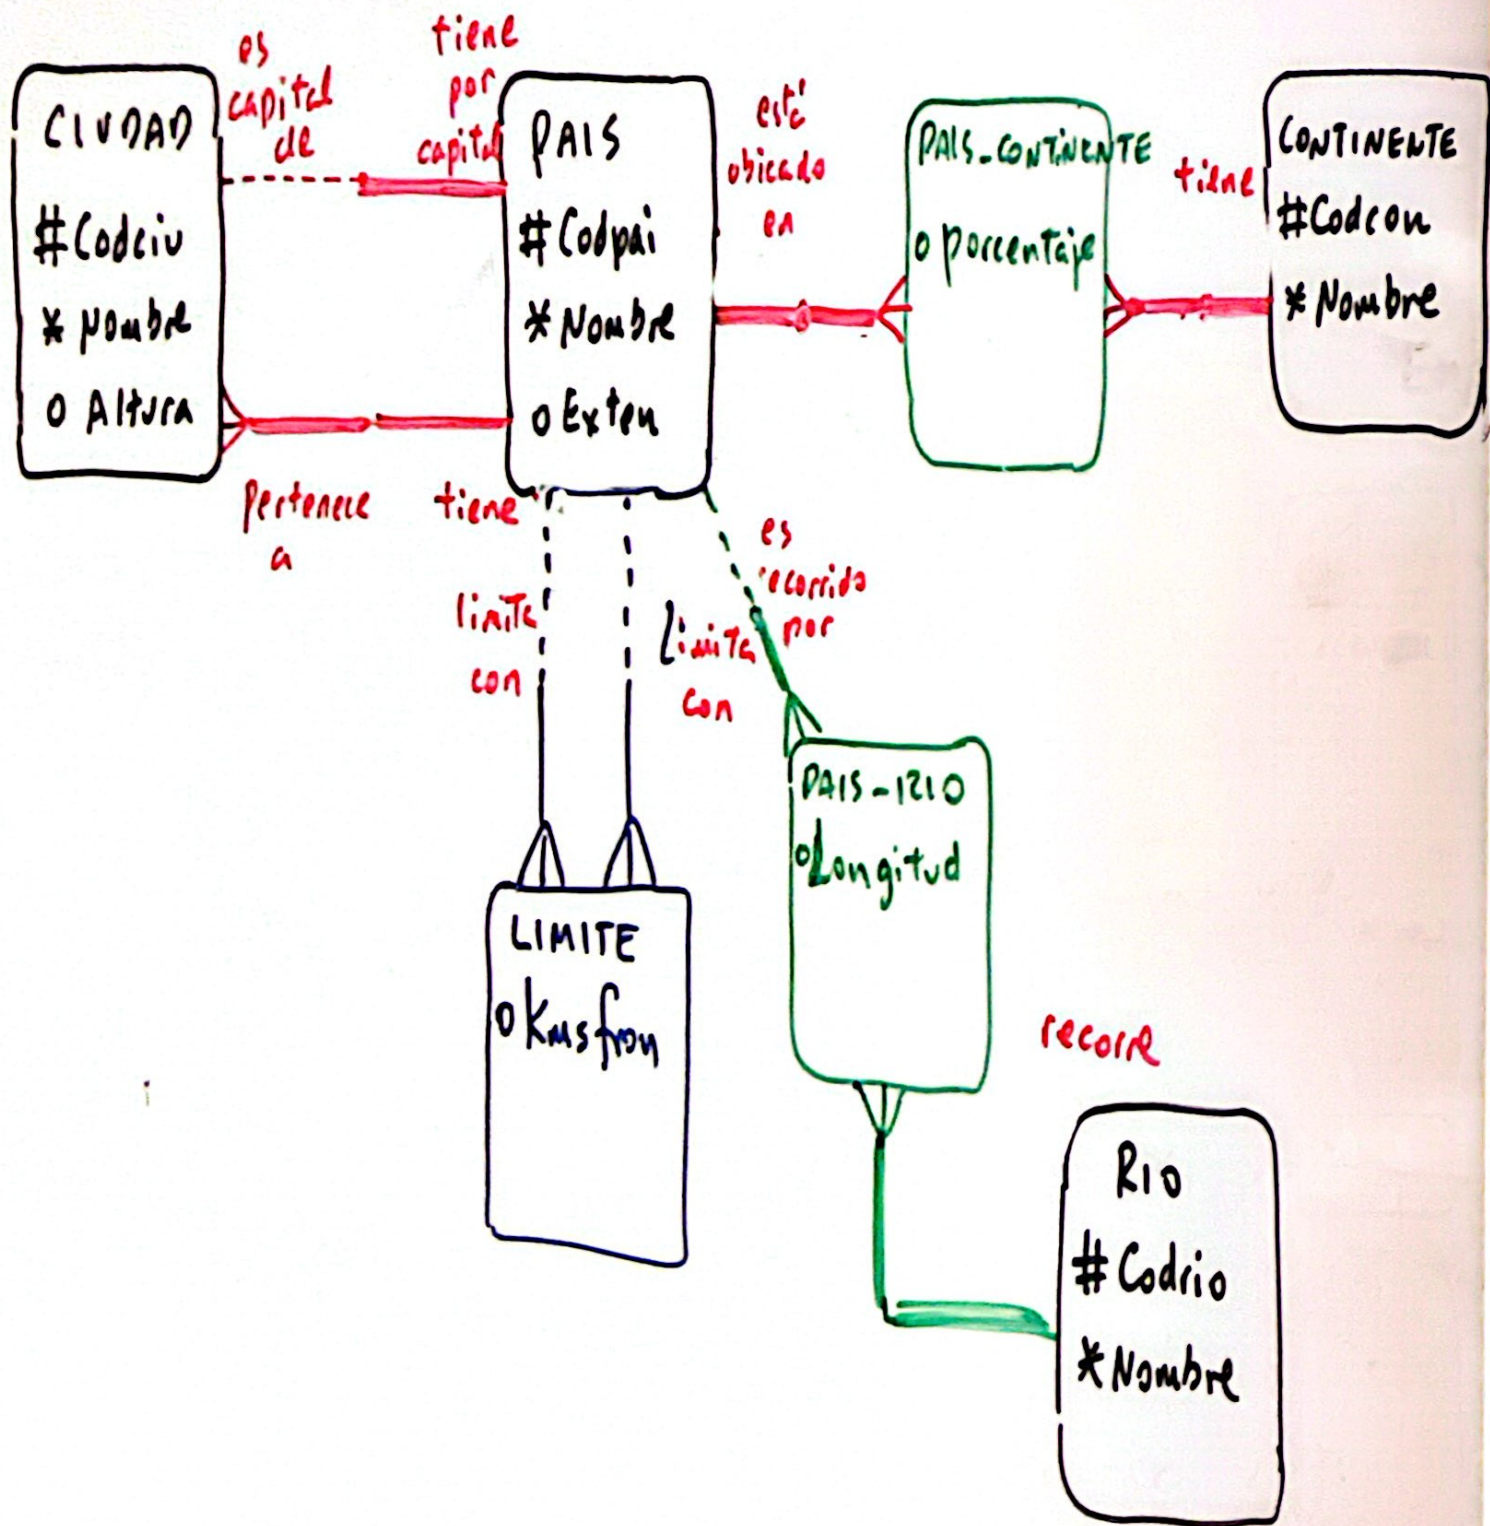 CIUDAD
#Codciu
* Nombre
o Altura
es
capital
de
tiene
por
capital
PAIS
#Codpai
*Nombre
o Exten
pertenece
a
tiene
está
ubicado
en
PAIS_CONTINENTE
o porcentaje
tiene
CONTINENTE
#Codcon
* Nombre
limita
con
Limita
con
es
recorrido
por
PAIS-RIO
o Longitud
LIMITE
o Kmsfron
recorre
RIO
# Codrio
*Nombre